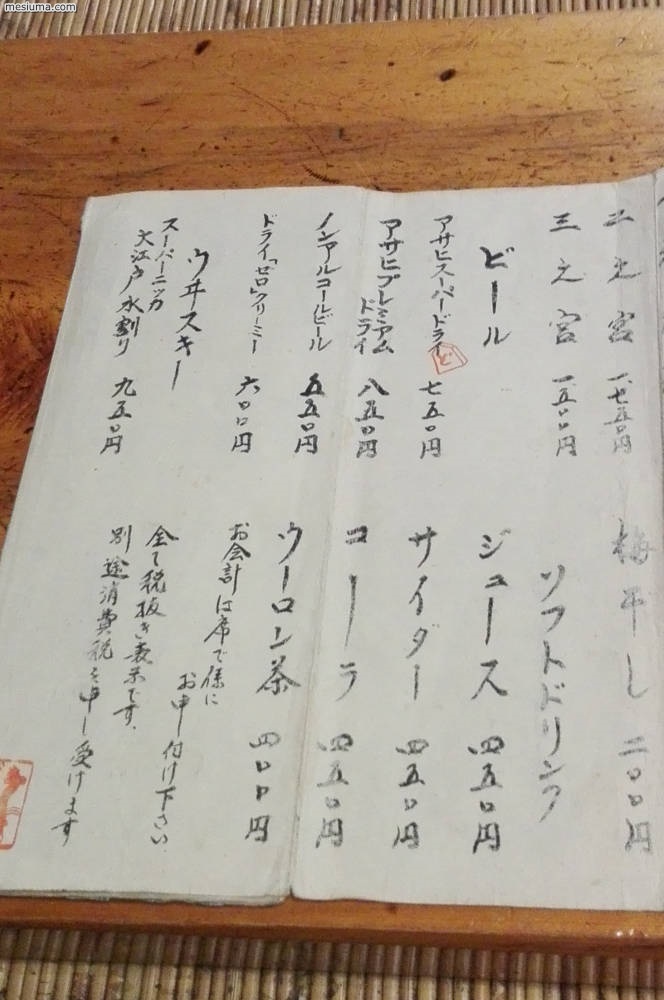 mesiuma.com
二之宮 一、七五〇円
三之宮 一、五〇〇円
ビール
アサヒスーパードライ 七五〇円
アサヒプレミアムドライ 八五〇円
ノンアルコールビール 五五〇円
ドライ「ゼロ」クリーミー 六〇〇円
ウヰスキー
スーパーニッカ
大江戸水割り 九五〇円
梅干し 二〇〇円
ソフトドリンク
ジュース 四五〇円
サイダー 四五〇円
コーラ 四五〇円
ウーロン茶 四〇〇円
お会計は席で係に
お申し付け下さい
全て税抜き表示です.
別途消費税を申し受けます